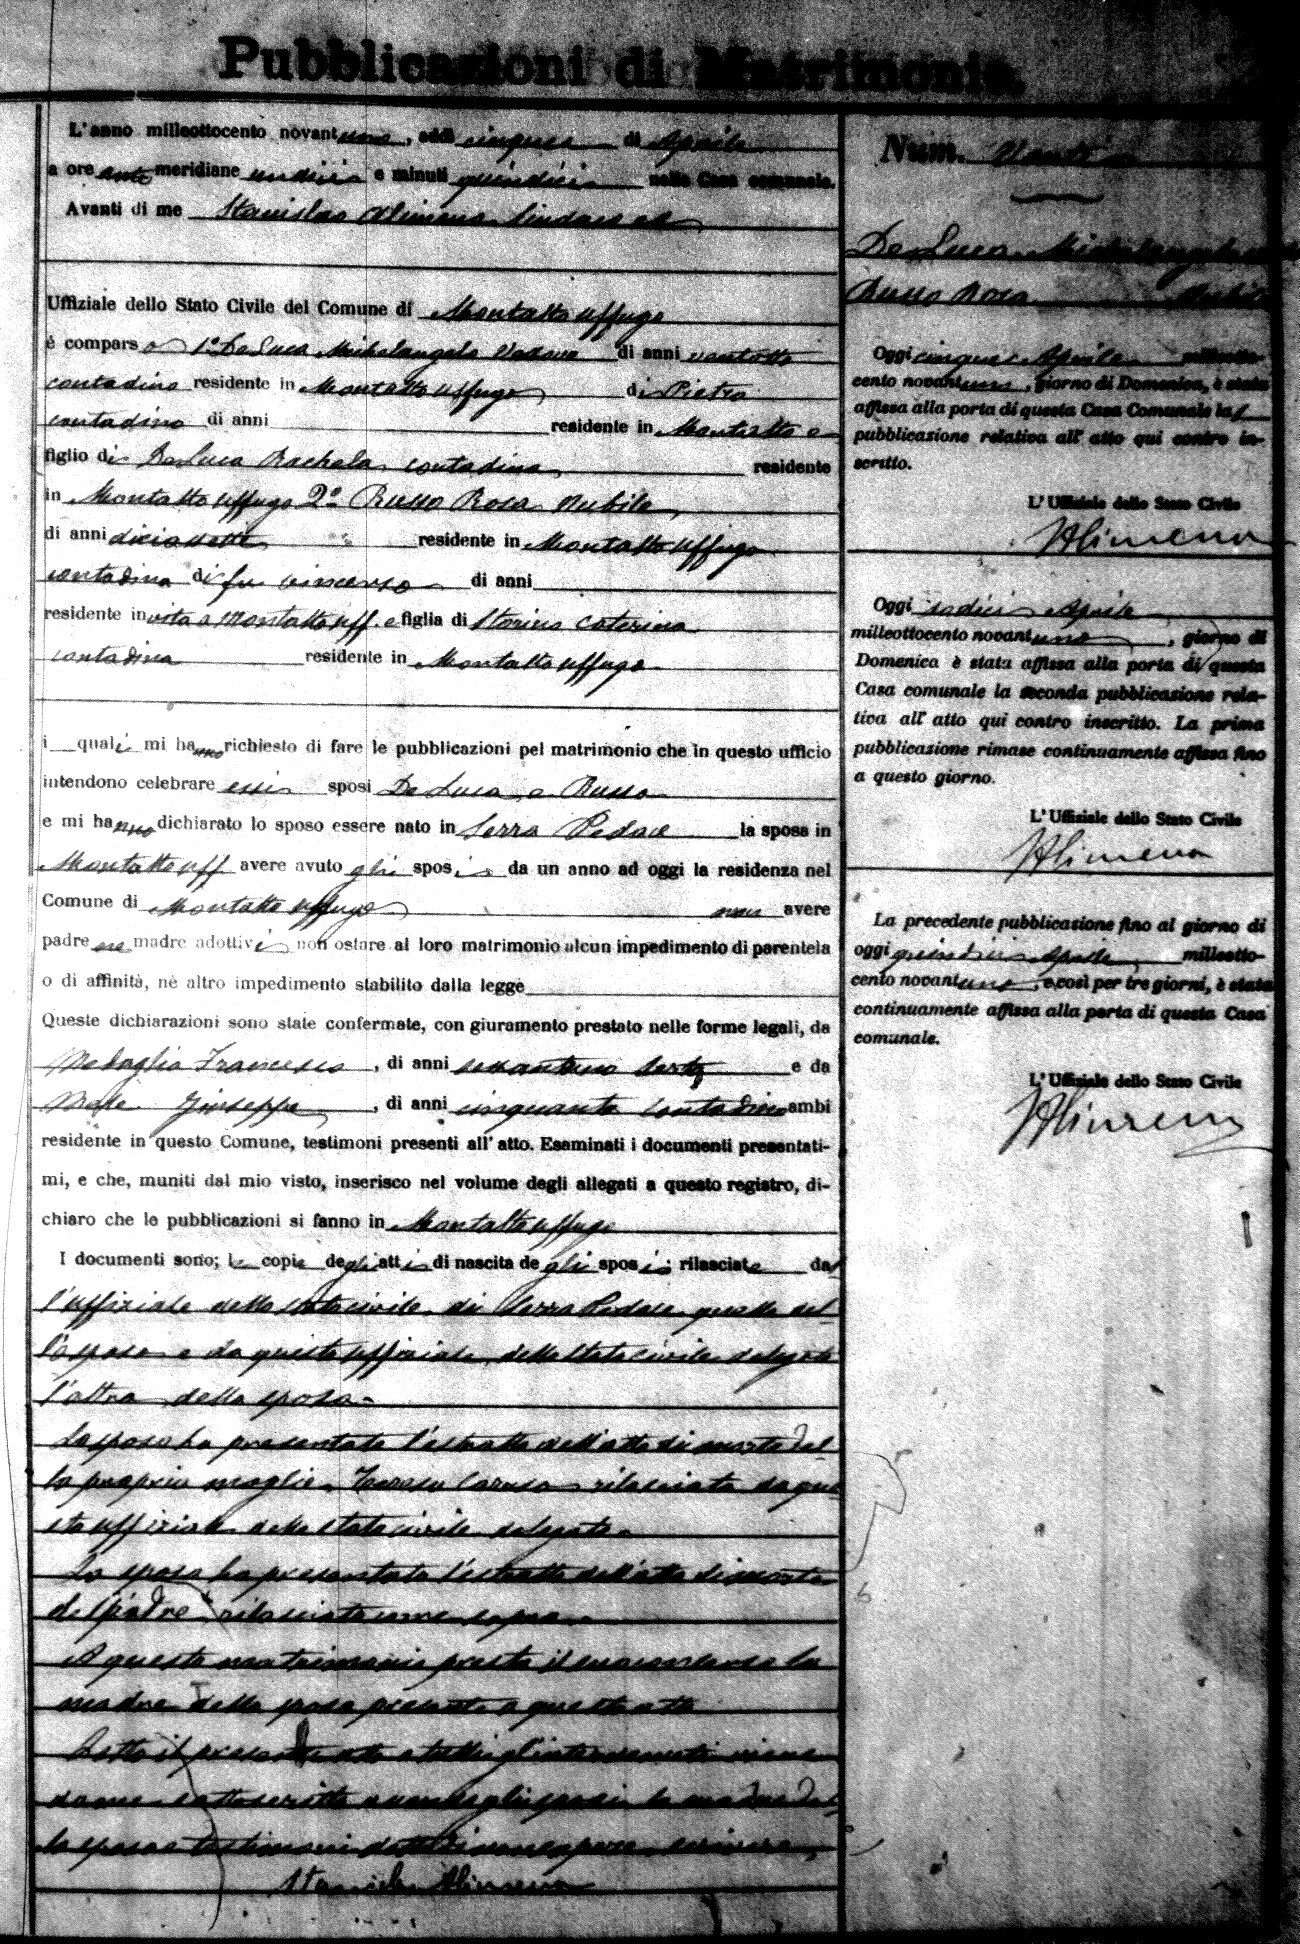 Pubblicazioni di Matrimonio.
L'anno milleottocento novantuno, addì cinque di Aprile
a ore antemeridiane undici e minuti quindici nella Casa comunale.
Avanti di me Stanislao Alimena Sindaco ed
Uffiziale dello Stato Civile del Comune di Montalto Uffugo
è comparso 1° De Luca Michelangelo Vedovo di anni ventotto
contadino residente in Montalto Uffugo di Pietro
contadino di anni residente in Montalto e
figlio di De Luca Rachela contadina residente
in Montalto Uffugo 2° Russo Rosa nubile
di anni diciasette residente in Montalto Uffugo
contadina di fu Vincenzo di anni
residente in vita a Montalto Uff. e figlia di Storino Caterina
contadina residente in Montalto Uffugo
i quali mi hanno richiesto di fare le pubblicazioni pel matrimonio che in questo ufficio
intendono celebrare essi sposi De Luca e Russo
e mi hanno dichiarato lo sposo essere nato in Serra Pedace la sposa in
Montalto Uff avere avuto gli sposi da un anno ad oggi la residenza nel
Comune di Montalto Uffugo non avere
padre ne madre adottivi non ostare al loro matrimonio alcun impedimento di parentela
o di affinità, nè altro impedimento stabilito dalla legge
Queste dichiarazioni sono state confermate, con giuramento prestato nelle forme legali, da
Medaglia Francesco, di anni sessantuno sarto e da
Giuseppe, di anni cinquanta contadino ambi
residente in questo Comune, testimoni presenti all'atto. Esaminati i documenti presentati-
mi, e che, muniti dal mio visto, inserisco nel volume degli allegati a questo registro, di-
chiaro che le pubblicazioni si fanno in Montalto Uffugo
I documenti sono; le copie degli atti di nascita degli sposi; rilasciate dal
l'uffiziale dello stato civile di Serra Pedace quella del
lo sposo e da questo uffiziale dello stato civile delegato
l'altra della sposa-
Lo sposo ha presentato l'estratto dell'atto di morte del
la propria moglie Teresa Caruso rilasciato da que
sto uffiziale dello stato civile delegato
La sposa ha presentato l'estratto dell'atto di morte
del padre rilasciato come sopra
A questo matrimonio presta il suo consenso la
madre della sposa presente a questo atto
Letto il presente atto a tutti gl'intervenuti viene
da me sottoscritto avendo gli sposi la madre del
la sposa e testimoni detto di non sapere scrivere
Stanislao Alimena
Num. Venti
De Luca Michelangelo
Russo Rosa nubile
Oggi cinque Aprile milleotto-
cento novantuno, giorno di Domenica, è stata
affissa alla porta di questa Casa Comunale la 1
pubblicazione relativa all'atto qui contro in-
scritto.
L'Uffiziale dello Stato Civile
Alimena
Oggi dodici Aprile
milleottocento novantuno, giorno di
Domenica è stata affissa alla porta di questa
Casa comunale la seconda pubblicazione rela-
tiva all'atto qui contro inscritto. La prima
pubblicazione rimase continuamente affissa fino
a questo giorno.
L'Uffiziale dello Stato Civile
Alimena
La precedente pubblicazione fino al giorno di
oggi quindici Aprile milleotto-
cento novantuno, e così per tre giorni, è stata
continuamente affissa alla porta di questa Casa
comunale.
L'Uffiziale dello Stato Civile
Alimena